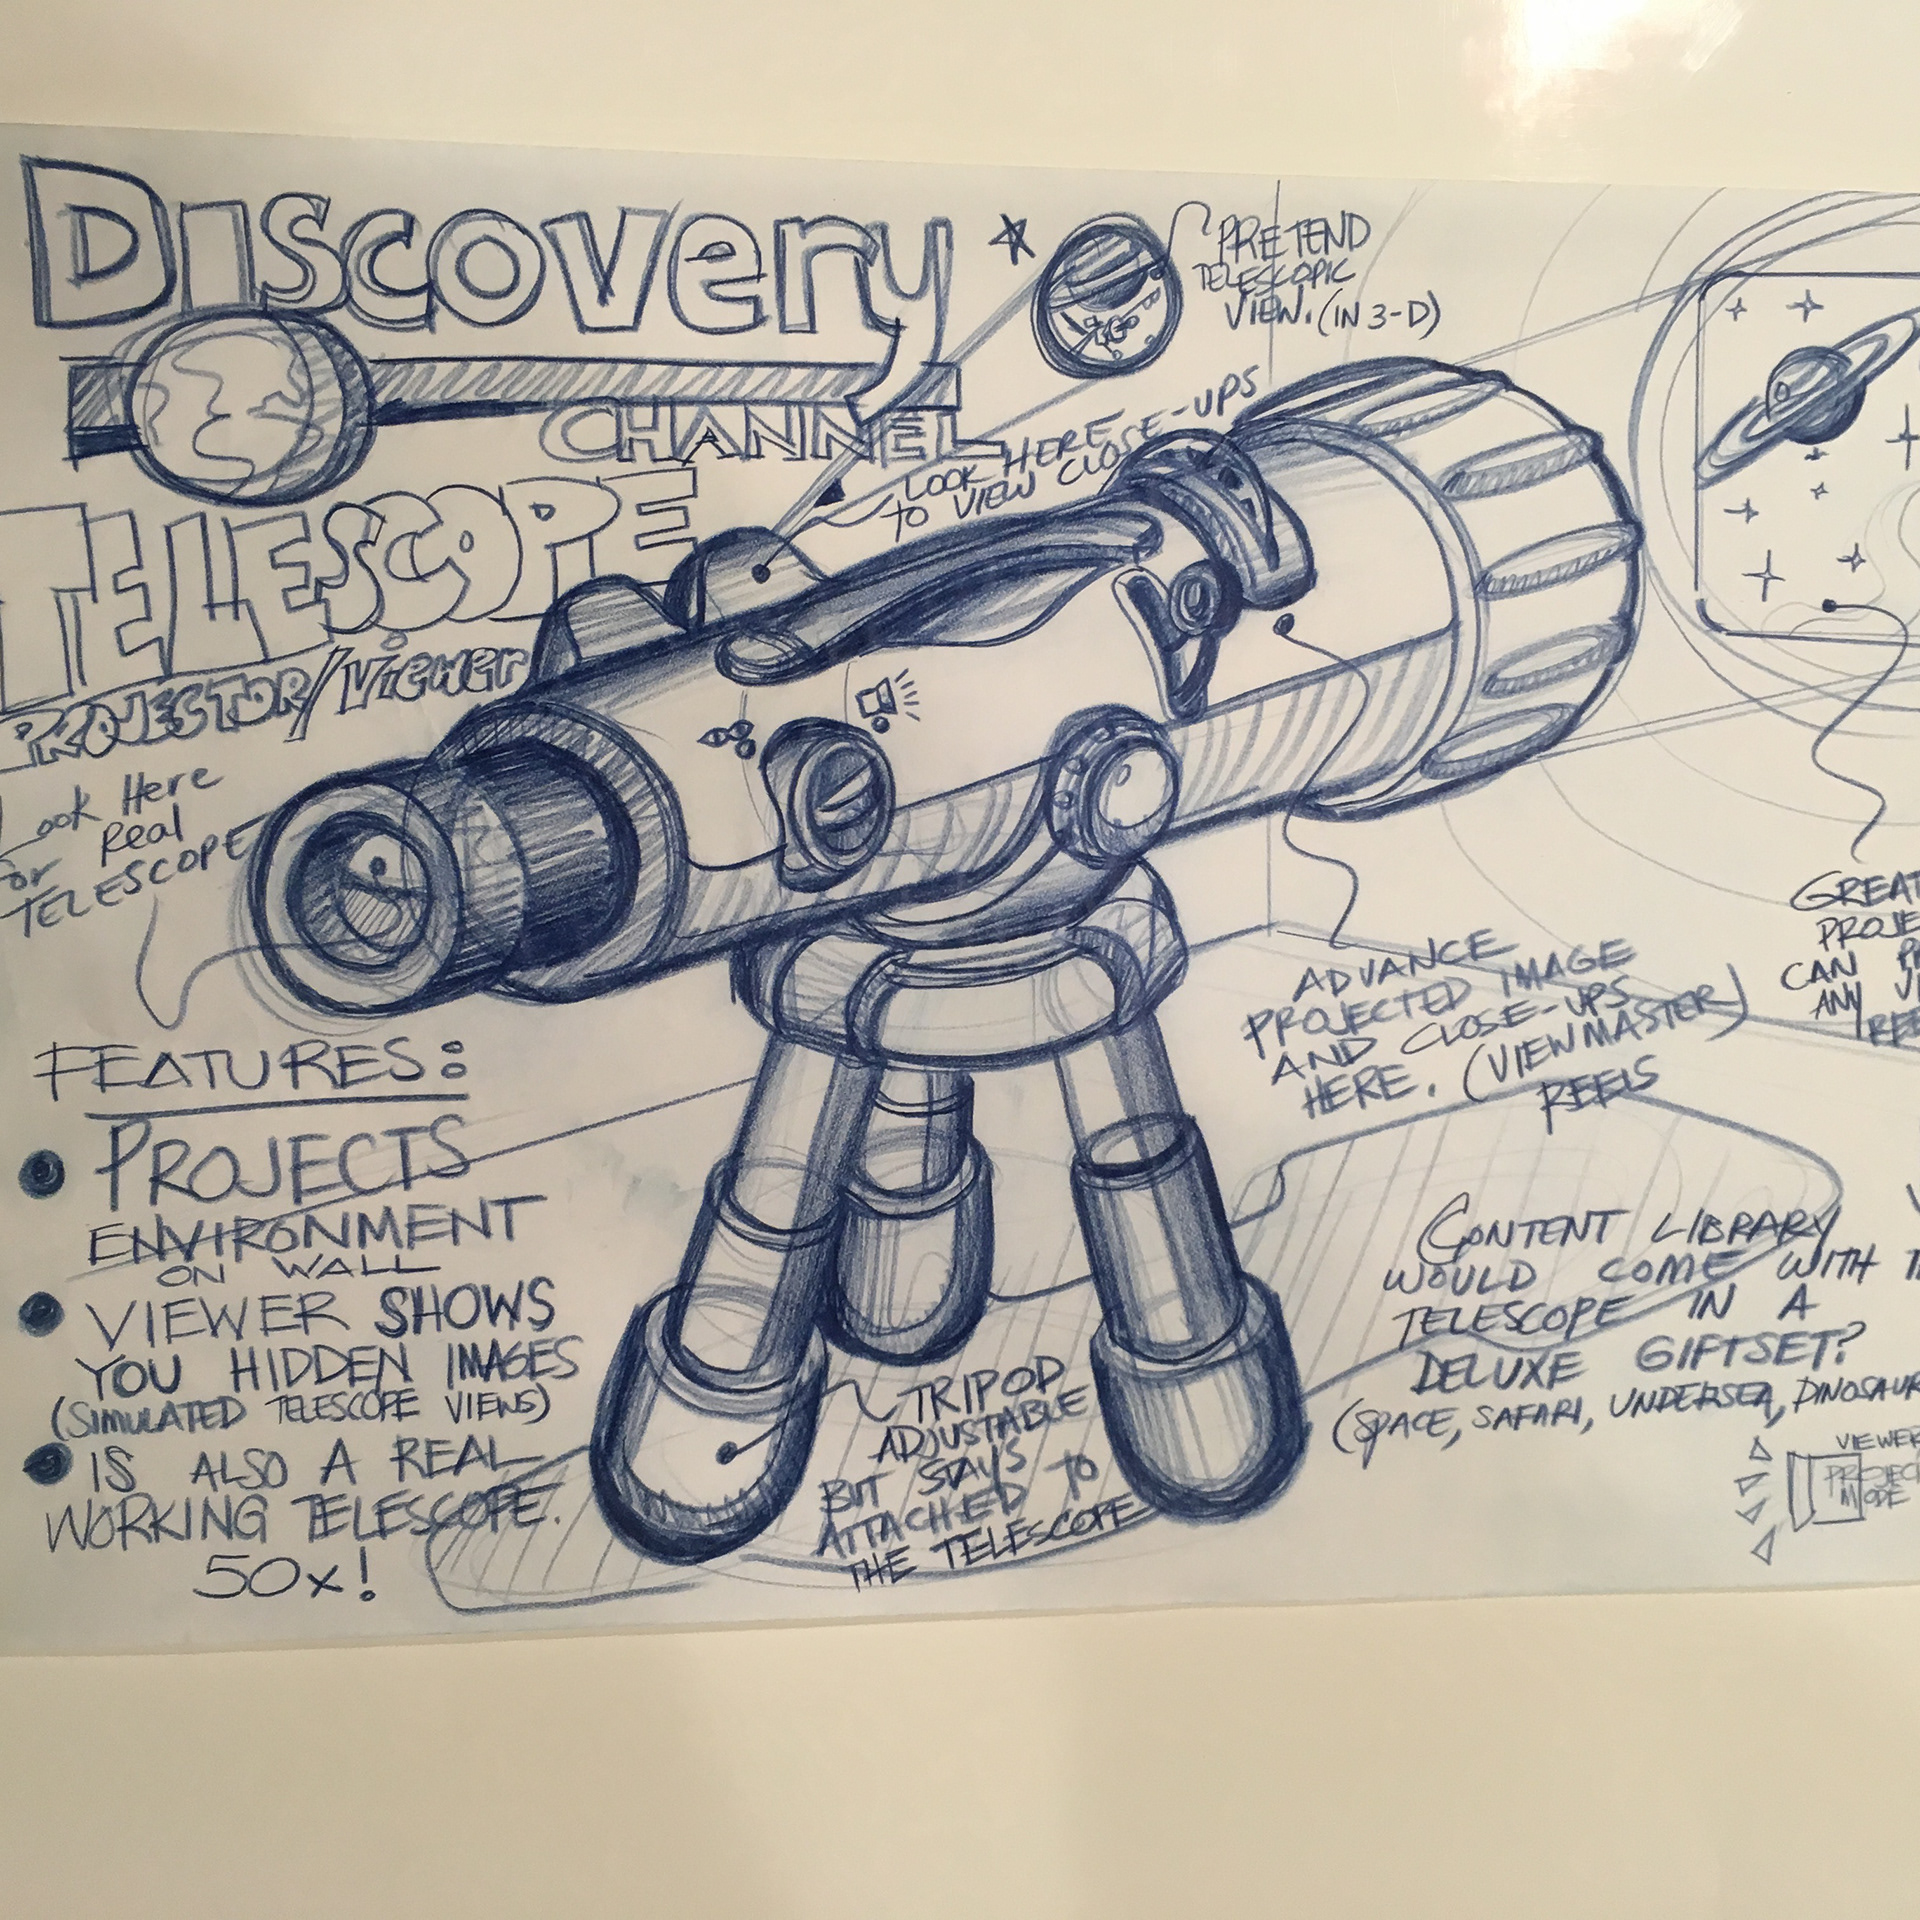 Discovery
CHANNEL
TELESCOPE
PROJECTOR/Viewer
Look Here
For Real
TELESCOPE
PRETEND
TELESCOPIC
VIEW. (IN 3-D)
LOOK HERE
TO VIEW CLOSE-UPS
FEATURES:
PROJECTS
ENVIRONMENT
ON WALL
VIEWER SHOWS
YOU HIDDEN IMAGES
(SIMULATED TELESCOPE VIEWS)
IS ALSO A REAL
WORKING TELESCOPE.
50x!
TRIPOD
ADJUSTABLE
BUT STAYS
ATTACHED TO
THE TELESCOPE
ADVANCE
PROJECTED IMAGE
AND CLOSE-UPS
HERE. (VIEWMASTER)
REELS
GREAT
PROJE
CAN
ANY
REE
CONTENT LIBRARY
WOULD COME WITH
TELESCOPE IN A
DELUXE GIFTSET?
(SPACE, SAFARI, UNDERSEA, DINOSAUR
VIEWER
PROJEC
MODE